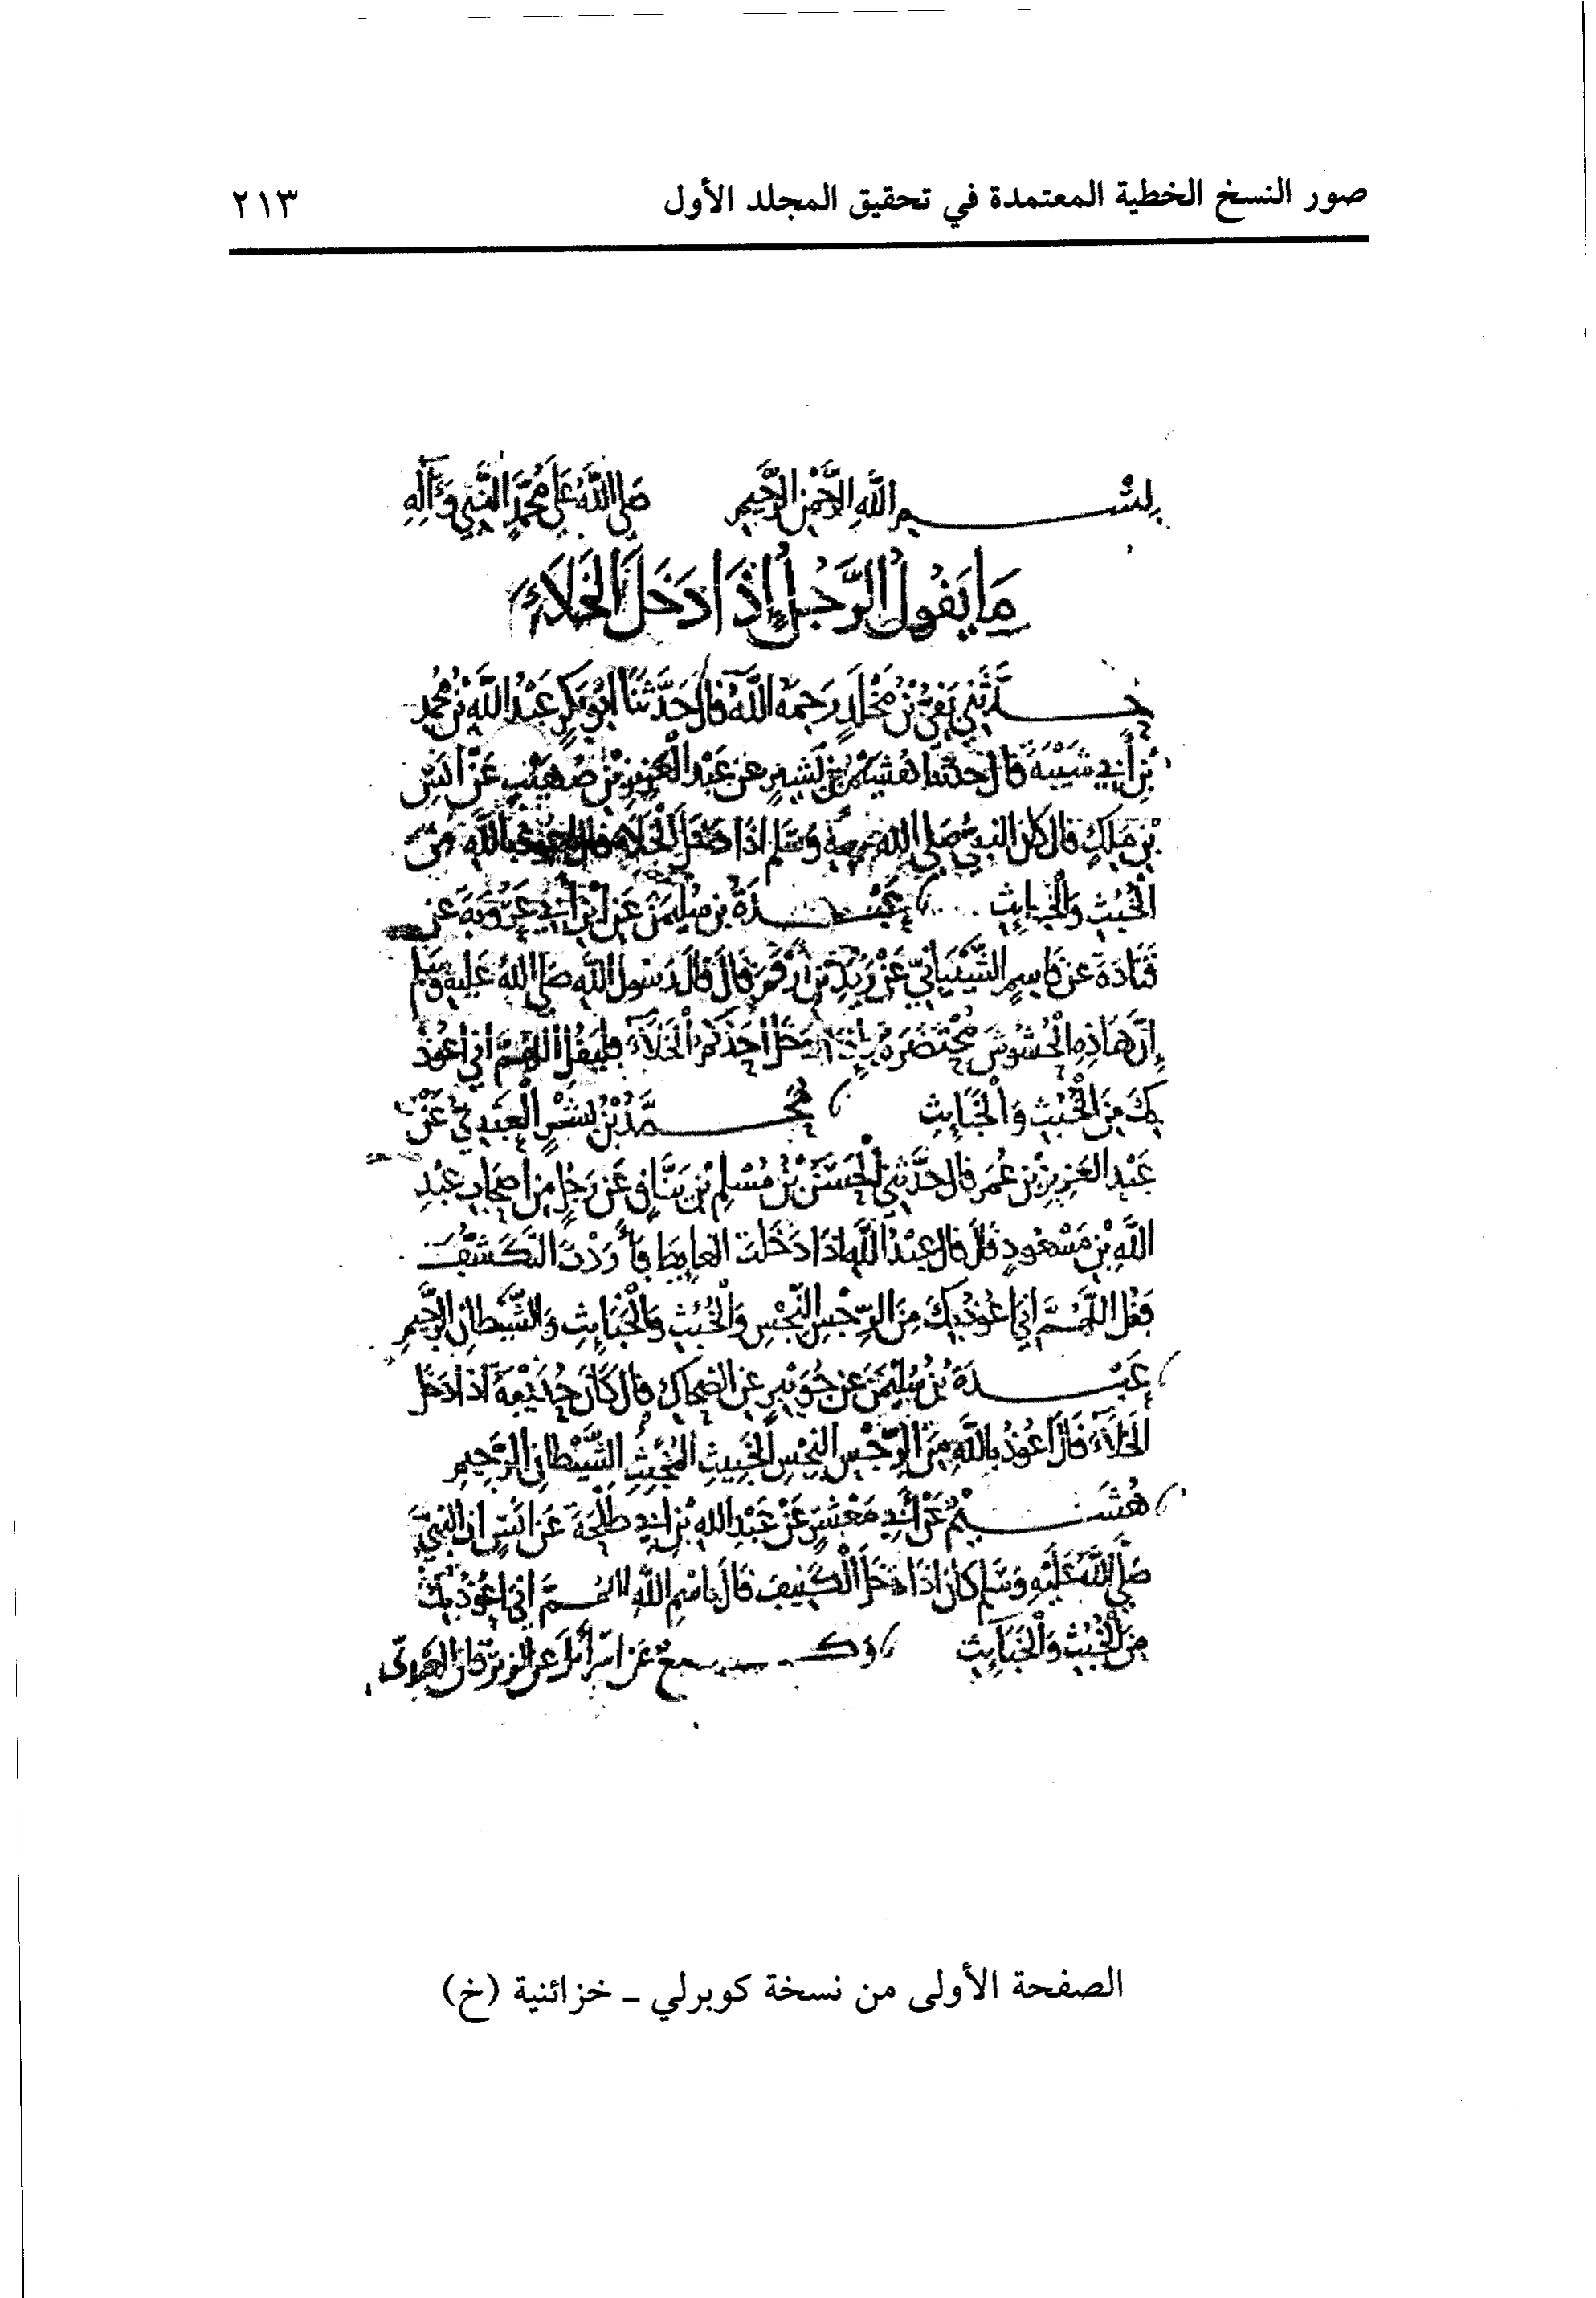 صور النسخ الخطية المعتمدة في تحقيق المجلد الأول ٢١٣
بسم الله الرحمن الرحيم صلى الله على محمد النبي وآله
ما يقول الرجل إذا دخل الخلاء
حدثني بقي بن مخلد رحمه الله قال حدثنا أبو بكر عبد الله بن محمد
بن أبي شيبة قال حدثنا هشيم بن بشير عن عبد العزيز بن صهيب عن أنس
بن ملك قال كان النبي صلى الله عليه وسلم إذا دخل الخلاء قال أعوذ بالله من
الخبث والخبايث عبدة بن سليمن عن ابن أبي عروبة عن
قتادة عن قاسم الشيباني عن زيد بن أرقم قال قال رسول الله صلى الله عليه وسلم
إن هاذه الحشوش محتضرة فإذا دخل أحدكم الخلاء فليقل اللهم إني أعوذ
بك من الخبث والخبايث محمد بن بشر العبدي عن
عبد العزيز بن عمر قال حدثني الحسن بن مسلم بن يناق عن رجل من أصحاب عبد
الله بن مسعود قال قال عبد الله إذا دخلت الغايط فأردت التكشف
فقل اللهم إني أعوذ بك من الرجس النجس والخبث والخبايث والشيطان الرجيم
عبدة بن سليمن عن جويبر عن الضحاك قال كان حذيفة إذا دخل
الخلاء قال أعوذ بالله من الرجس النجس الخبيث المخبث الشيطان الرجيم
هشيم عن أبي معشر عن عبد الله بن أبي طلحة عن أنس أن النبي
صلى الله عليه وسلم كان إذا دخل الكنيف قال باسم الله اللهم إني أعوذ بك
من الخبث والخبايث وكيع عن اسرائل عن الزبرقان العبدي
الصفحة الأولى من نسخة كوبرلي - خزائنية (خ)